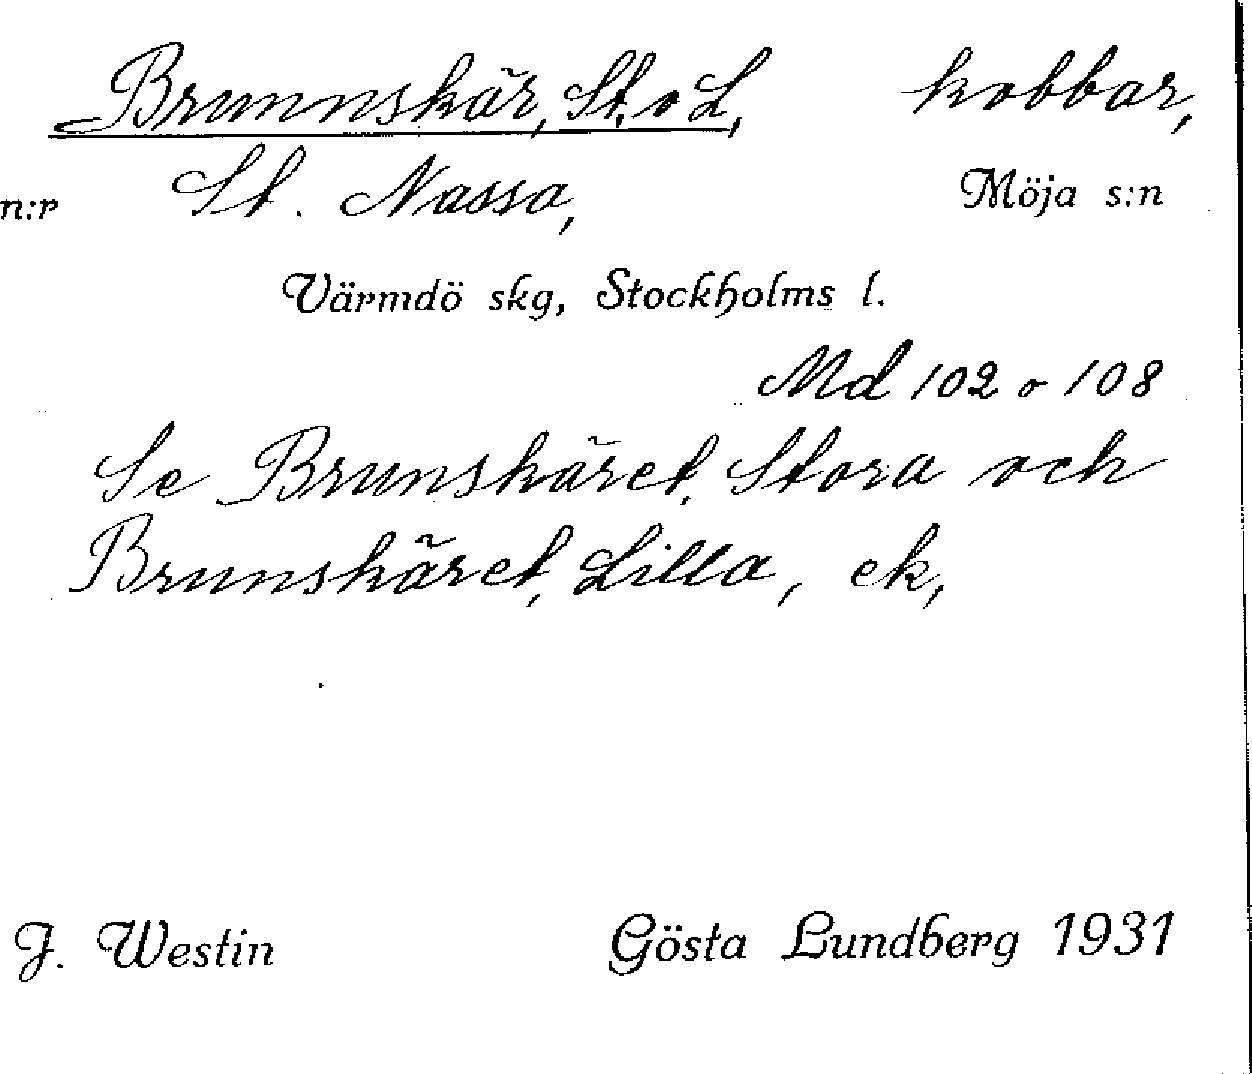 Brunnskär, St. o L, kobbar,
n:r St. Nassa, Möja s:n
Värmdö skg, Stockholms l.
Md 102 o 108
Se Brunskäret, Stora och
Brunskäret, Lilla, ek,
J. Westin Gösta Lundberg 1931